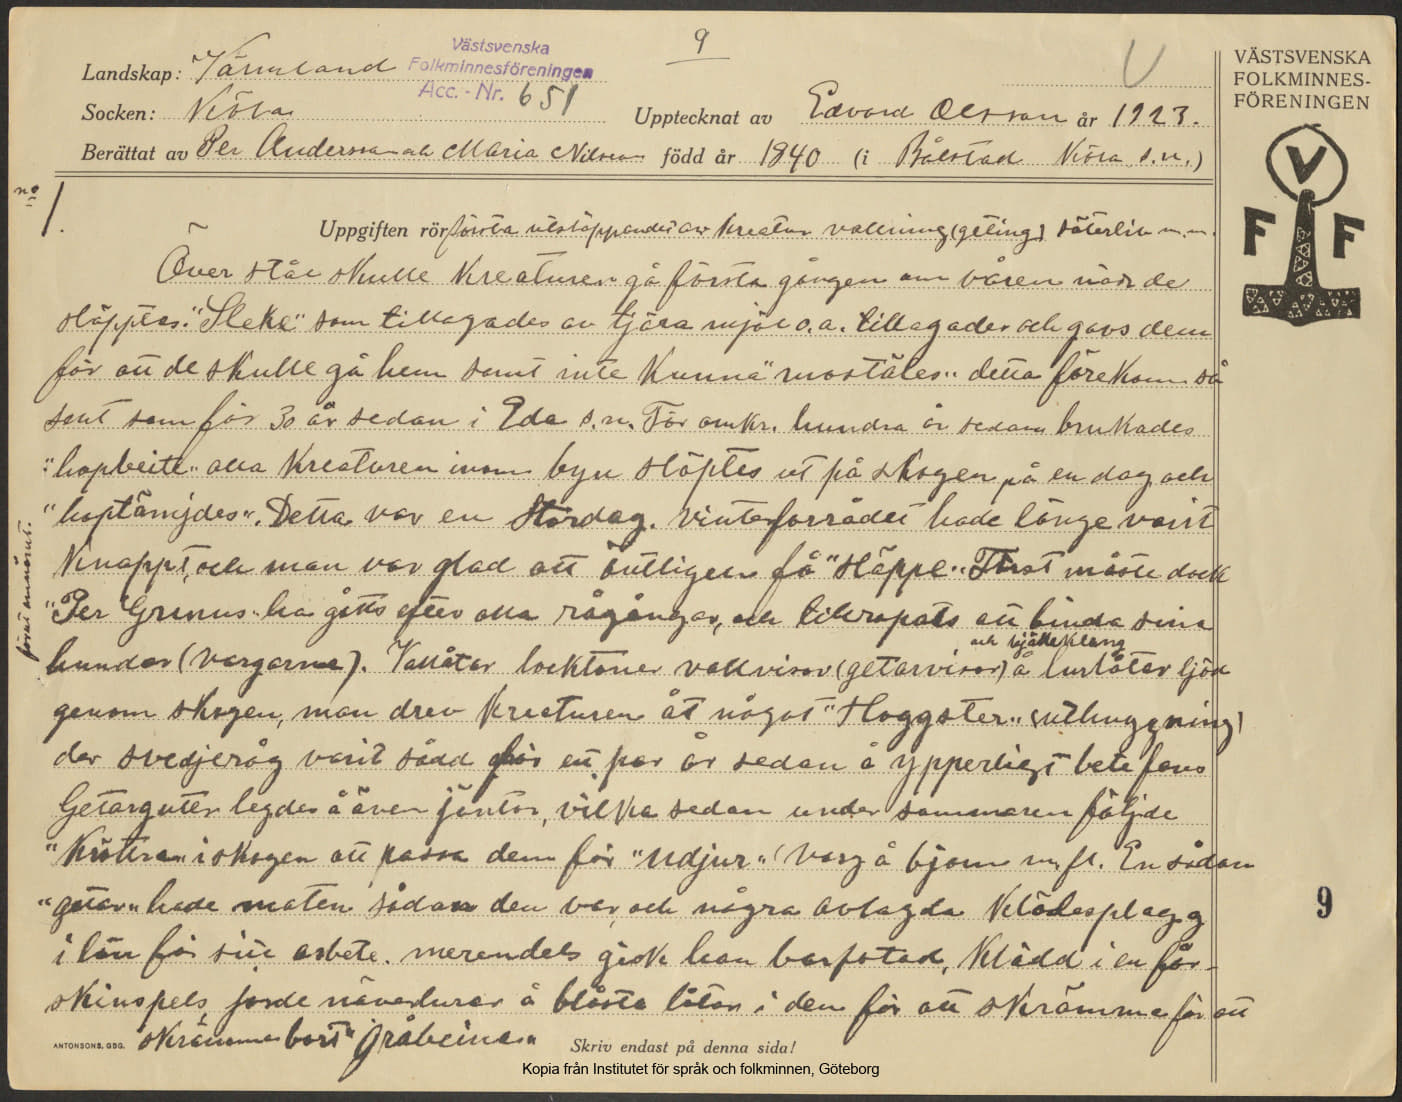 9
Västsvenska
Folkminnesföreningen
Acc. - Nr. 651
Landskap: Värmland
Socken: Köla
Upptecknat av Edvard Olsson år 1923.
Berättat av Per Andersson och Maria Nilsson född år 1840 (i Bålstad Köla s.n.)
VÄSTSVENSKA
FOLKMINNES-
FÖRENINGEN
V
F F
no
1.
Uppgiften rör första utsläppandet av kreatur vallning (geting) säterliv m.m.
Över stål skulle kreaturen gå första gången om våren när de
släpptes. "Sleke" som tillagades av tjära mjöl o.a. tillagades och gavs dem
för att de skulle gå hem samt inte kunna "mostäles" detta förekom så
sent som för 30 år sedan i Eda s.n. För omkr. hundra år sedan brukades
"hopbeite" alla kreaturen inom byn släptes ut på skogen på en dag och
"hoptämjdes". Detta var en stordag. Vinterförrådet hade länge varit
knappt, och man var glad att äntligen få "släppe". Först måste dock
"Per Grunus" ha gåtts efter alla rågångar, och tillropats att binda sina
förut annorst.
hundar (vargarna). Vallåtar locktoner vallvisor (getarvisor) å lurlåtar ljöd
och bjälleklang
genom skogen, man drev kreaturen åt något "Hoggster" (uthuggning)
der svedjeråg varit sådd för ett par år sedan å ypperligt bete fans
Getargutter legdes å även jäntor, vilka sedan under sommaren följde
"krøttera" i skogen att passa dem för "udjur" (varg å björn m.fl. En sådan
"getar" hade maten sådan den var, och några avlagda klädesplagg
i lön för sitt arbete. merendels gick han barfotad, klädd i en får-
skinspels, jorde näverlurar å blåste låtar i dem för att skrämma för att
skrämma bort "gråbeina"
ANTONSONS, GBG.
Skriv endast på denna sida!
9
Kopia från Institutet för språk och folkminnen, Göteborg